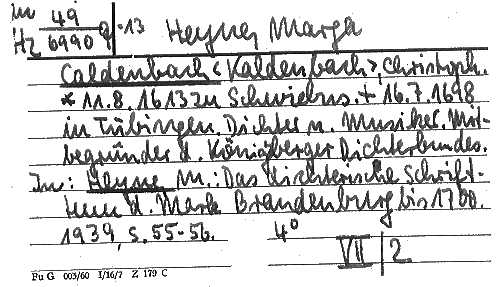 m 49
Hz 6990 q .13 Heyne, Marga
Caldenbach <Kaldenbach>, Christoph.
* 11.8.1613 zu Schwiebus. + 16.7.1698
in Tübingen. Dichter u. Musiker. Mit-
begründer d. Königsberger Dichterbundes.
In: Heyne M.: Das dichterische Schrift-
tum d. Mark Brandenburg bis 1700.
1939, S. 55-56. 4°
VII 2
Fu G 003/60 I/16/7 Z 179 C